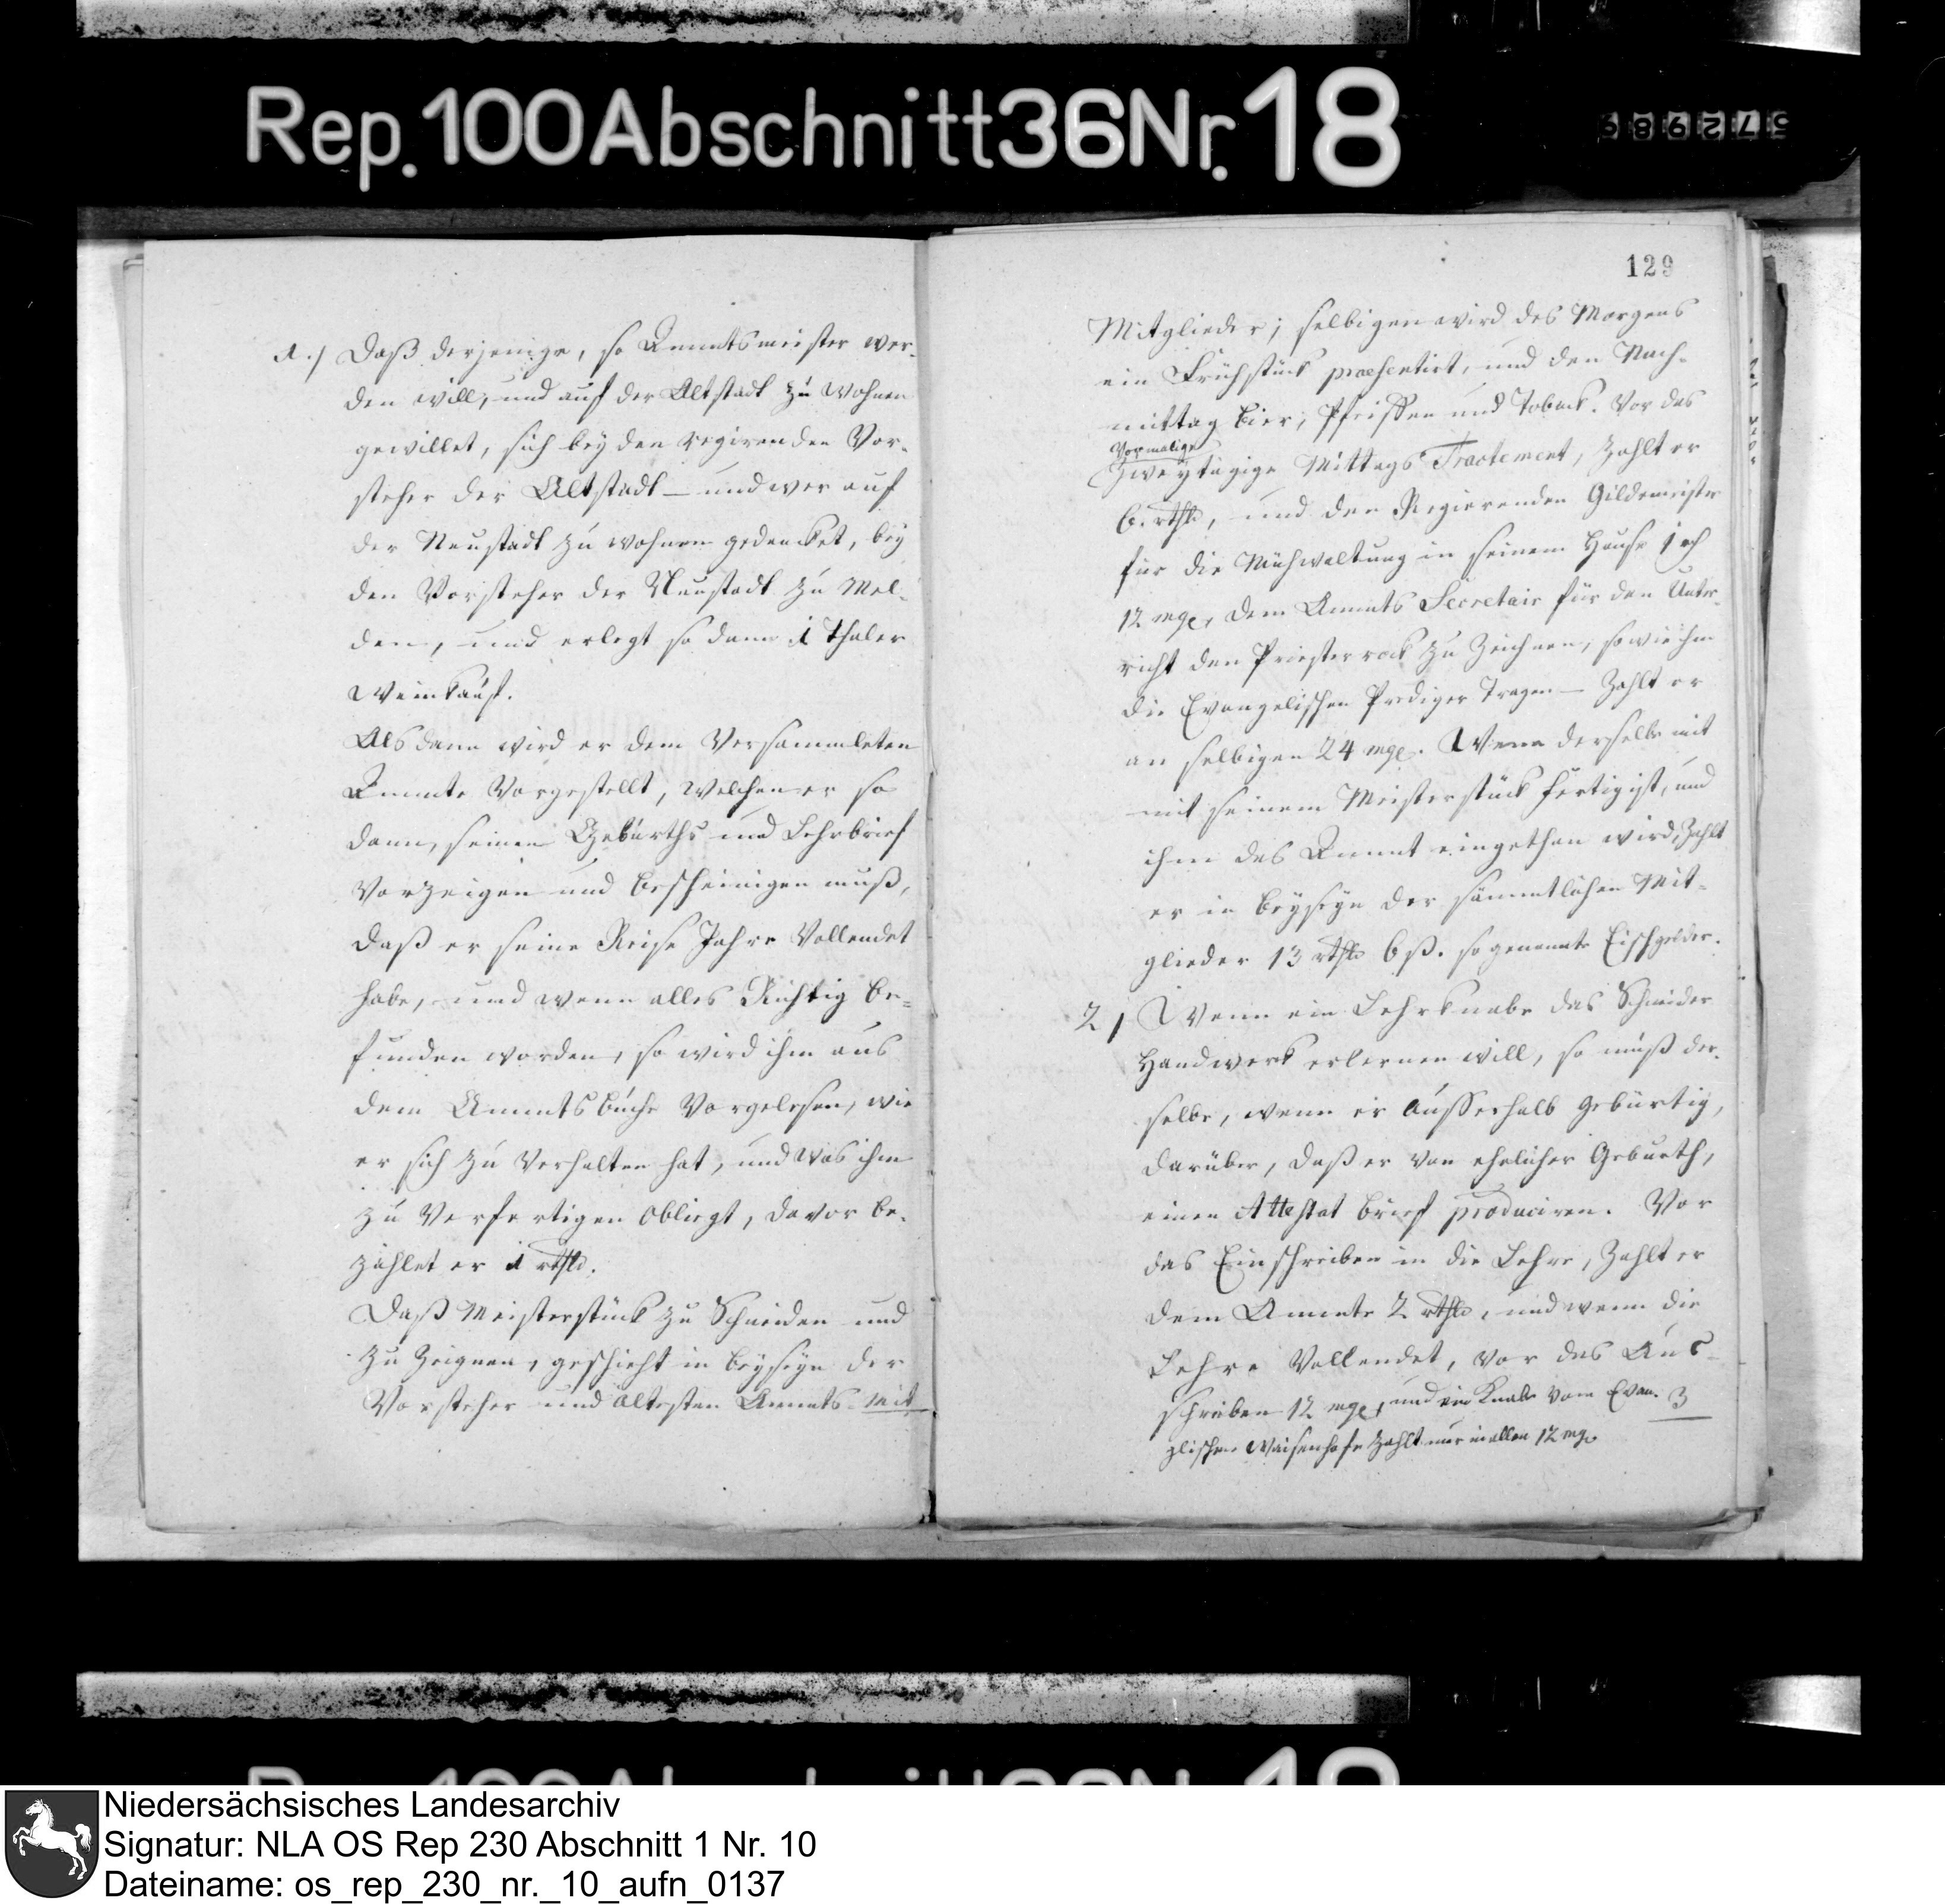 Rep. 100 Abschnitt 36 Nr. 18
572989
1./ Daß derjenige, so Ammtsmeister wer-
den will, und auf der Altstadt zu wohnen
gewillet, sich bey den regirenden Vor-
steher der Altstadt — und wer auf
der Neustadt zu wohnen gedencket, bey
den Vorsteher der Neustadt zu Mel-
den, und erlegt so dann 1 Thaler
Weinkauf.
Als dann wird er dem Versammleten
Ammte Vorgestellt, welchen er so
dann, seinen Geburths und Lehrbrief
Vorzeigen und bescheinigen muß,
daß er seine Reise Jahre Vollendet
habe, und wenn alles Richtig be-
funden worden, so wird ihm aus
dem Ammts buche Vorgelesen, wie
er sich zu Verhalten hat, und was ihm
zu Verfertigen obliegt, davor be-
zahlet er 1 rthlr.
Daß Meisterstück zu Schneiden und
zu Zeignen, geschieht in beyseyn der
Vorsteher und ältesten Ammts-Mit
129
Mitglieder; selbigen wird des Morgens
ein Frühstück praesentirt, und den Nach-
mittag bier, Pfeiffen und Toback. Vor das
Vormalige
Zweytägige Mittags Tractement, Zahlt er
6. rthlr, und den Regierenden Gildemeister
für die Mühwaltung in seinem Hause 1 rh
12 mge, dem Ammts Secretair für den Unter-
richt den Priesterrock zu Zeichnen, so wie ihn
die Evangelischen Prediger Tragen — Zahlt er
an selbigen 24 mge. Wenn derselbe mit
mit seinem Meisterstück fertig ist, und
ihm das Ammt eingethan wird, Zahlt
er in beyseyn der sämmtlichen Mit-
glieder 13 rthlr 6 ß. so genannte Eischgelder.
2/ Wenn ein Lehrknabe das Schneider
Handwerk erlernen will, so muß der-
selbe, wenn er Ausserhalb gebürtig,
darüber, daß er von ehelicher Geburth,
einen Attestat brief produciren. Vor
das Einschreiben in die Lehre, Zahlt er
dem Ammte 2 rthlr, und wenn die
Lehre Vollendet, vor das Aus-
schreiben 12 mge, und ein Knabe vom Evan- 3
glischen Waisenhofe Zahlt nur in allen 12 mge
Niedersächsisches Landesarchiv
Signatur: NLA OS Rep 230 Abschnitt 1 Nr. 10
Dateiname: os_rep_230_nr._10_aufn_0137